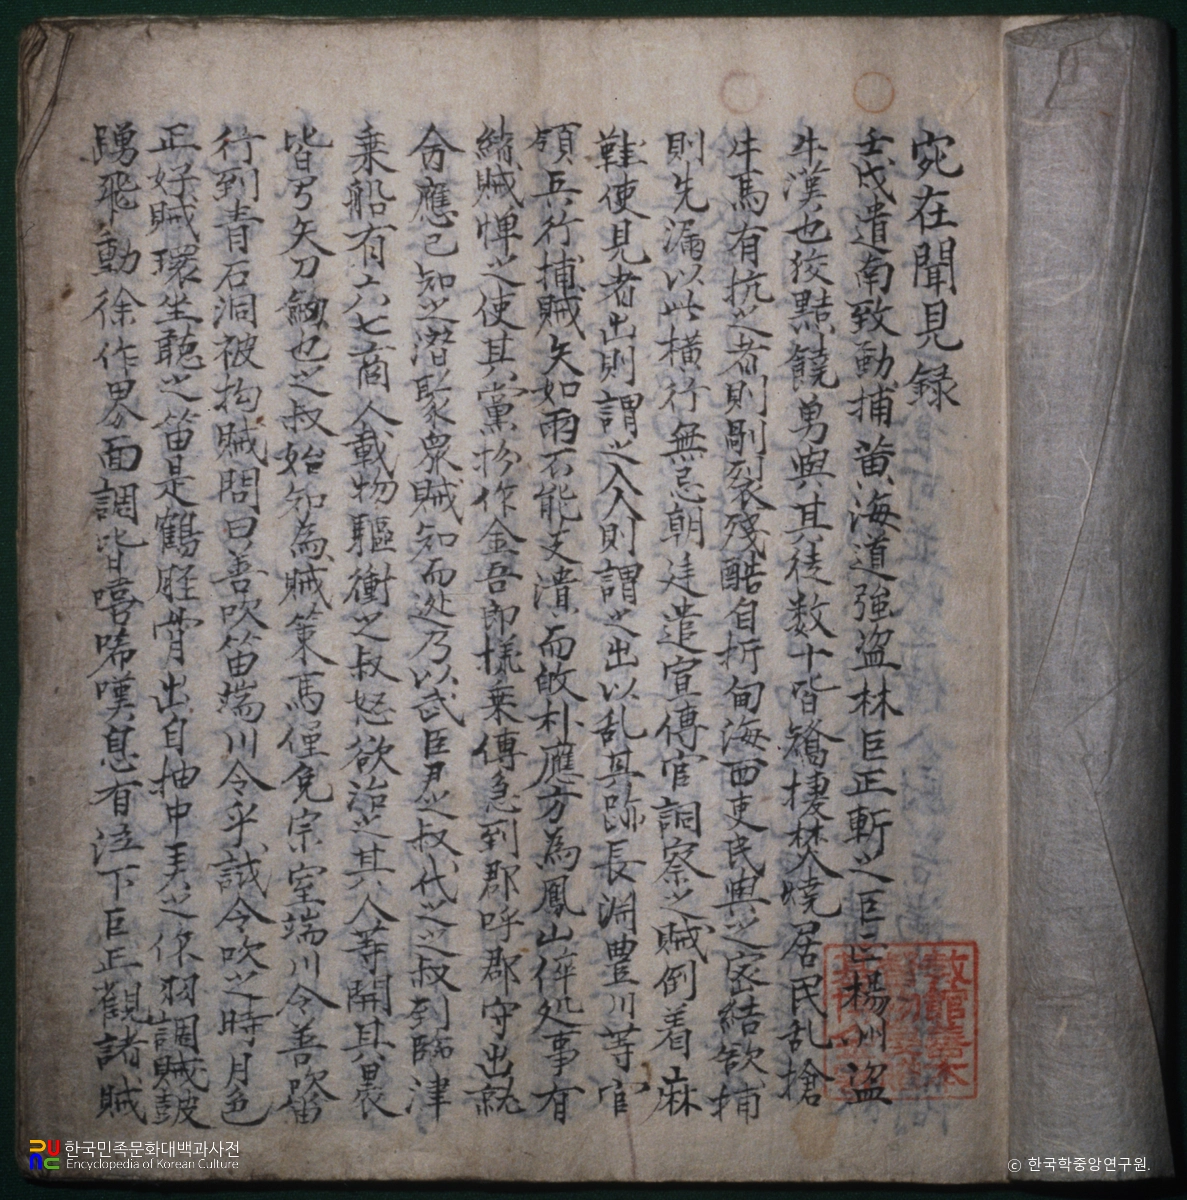 宛在聞見録
壬戌遣南致動捕黄海道強盗林巨正斬之巨正楊州盗
牛漢也狡黠饒勇與其徒数十皆矯捷焚燒居民乱搶
牛馬有抗之者則剮裂残酷自折甸海西吏民與之密結欲捕
則先漏以此横行無忌朝廷遣宣傳官詗察之賊倒着麻
鞋使見者出則謂之入入則謂之出以乱其跡長淵豊川等官
領兵行捕賊矢如雨不能支潰而敀朴應方為鳳山倅処事有
緒賊憚之使其黨扮作金吾郎㨾乗傳急到郡呼郡守出就
舍應已知之潜聚衆賊知而逃乃以武臣尹之叔代之之叔到臨津
乗船有六七商人載物驅衝之叔怒欲治之其人等開其裹
皆弓矢刀劔也之叔始知為賊策馬僅免宗室端川令善吹笛
行到青石洞被拘賊問曰善吹笛端川令乎試令吹之時月色
正好賊環坐聴之笛是鶴脛骨出自抽中弄之作羽調賊鼓
踴飛動徐作界面調皆嘻唏嘆息有泣下巨正観諸賊
한국민족문화대백과사전
Encyclopedia of Korean Culture
© 한국학중앙연구원.